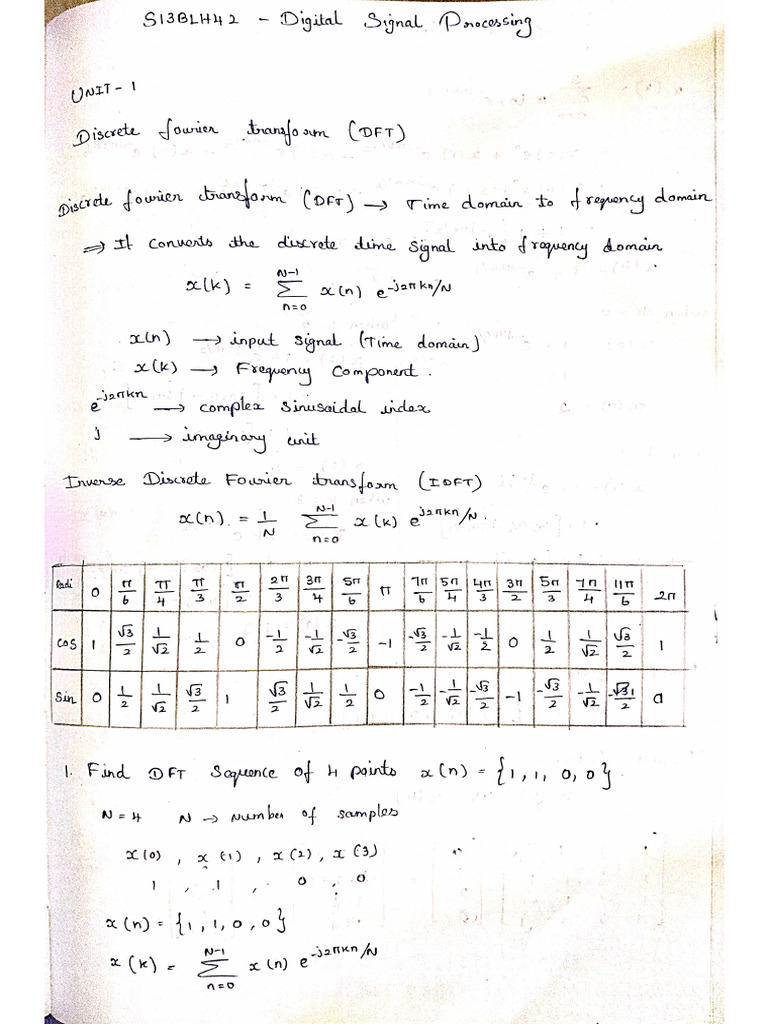 S13BLH42 - Digital Signal Processing
UNIT - 1
Discrete fourier transform (DFT)
Discrete fourier transform (DFT) → Time domain to frequency domain
⇒ It converts the discrete time signal into frequency domain
x(k) = N-1 Σ n=0 x(n) e^-j2πkn/N
x(n) → input signal (Time domain)
x(k) → Frequency Component.
e^-j2πkn → complex sinusoidal index
j → imaginary unit
Inverse Discrete Fourier transform (IDFT)
x(n) = 1/N N-1 Σ n=0 x(k) e^j2πkn/N.
Radi 0 π/6 π/4 π/3 π/2 2π/3 3π/4 5π/6 π 7π/6 5π/4 4π/3 3π/2 5π/3 7π/4 11π/6 2π
cos 1 √3/2 1/√2 1/2 0 -1/2 -1/√2 -√3/2 -1 -√3/2 -1/√2 -1/2 0 1/2 1/√2 √3/2 1
Sin 0 1/2 1/√2 √3/2 1 √3/2 1/√2 1/2 0 -1/2 -1/√2 -√3/2 -1 -√3/2 -1/√2 -1/2 0
1. Find DFT Sequence of 4 points x(n) = {1, 1, 0, 0}
N = 4 N → Number of samples
x(0), x(1), x(2), x(3)
1, 1, 0, 0
x(n) = {1, 1, 0, 0}
x(k) = N-1 Σ n=0 x(n) e^-j2πkn/N